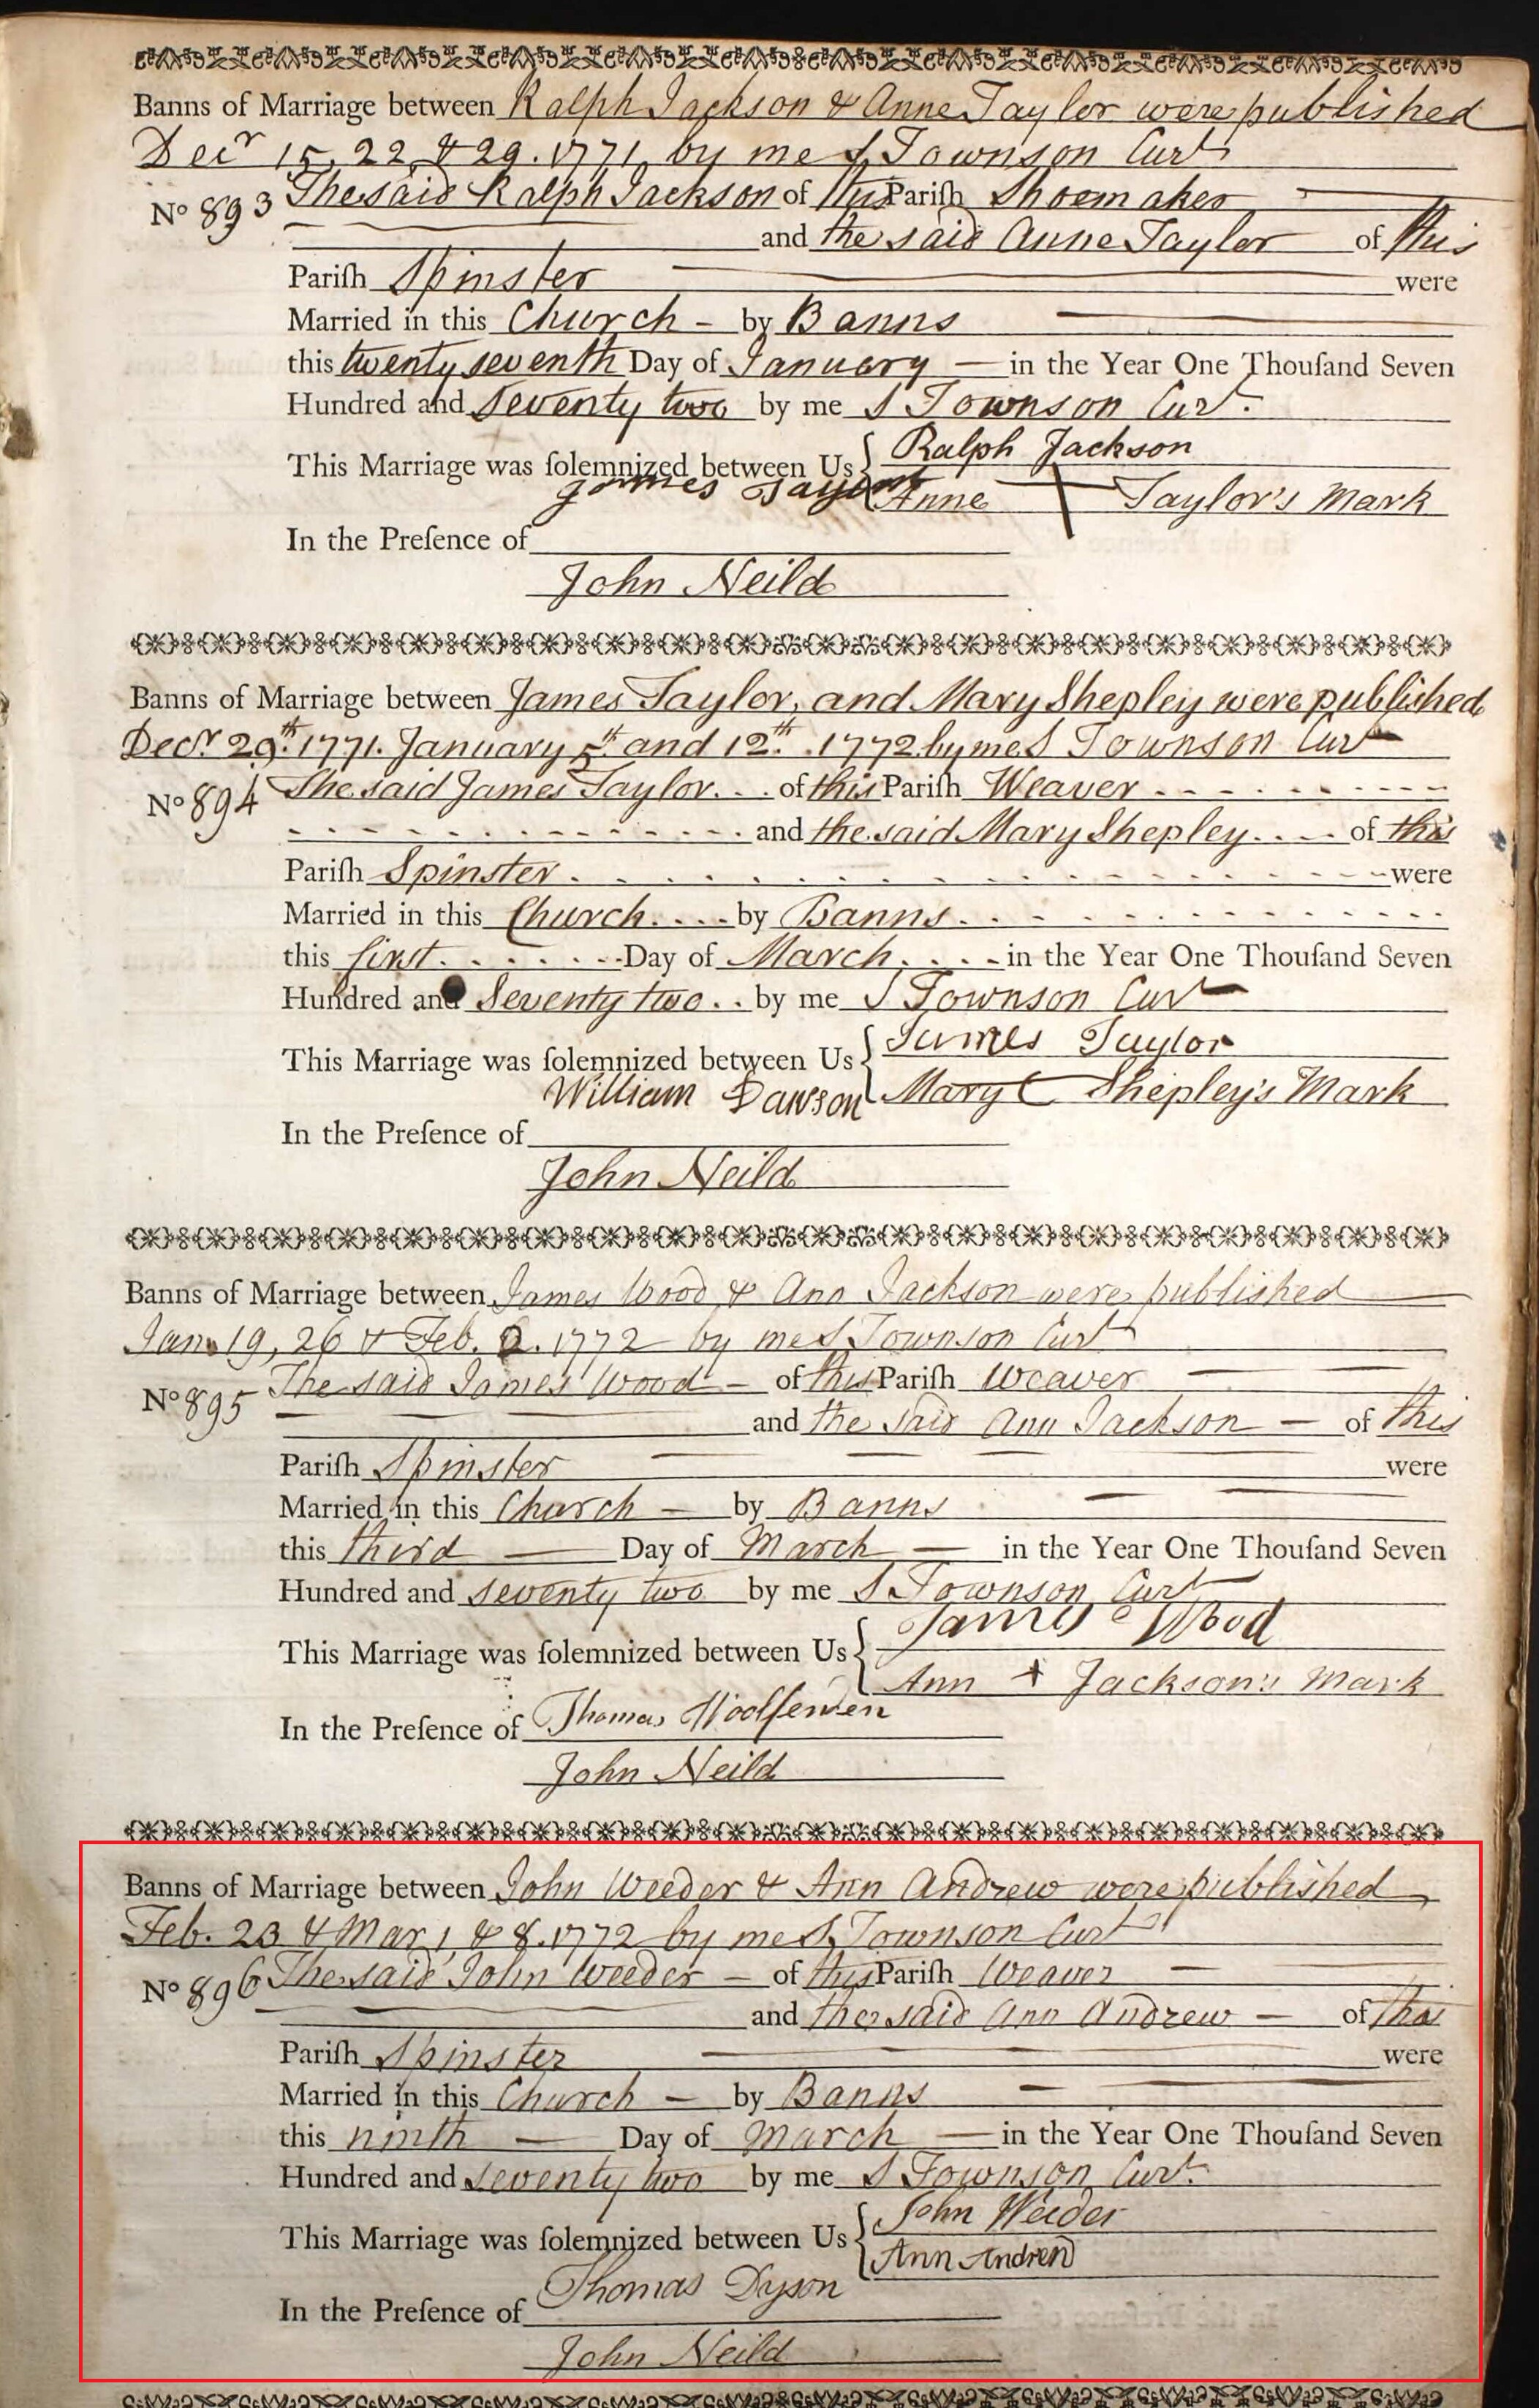 Banns of Marriage between Ralph Jackson & Anne Taylor were published
Decr 15, 22, & 29. 1771, by me S Townson Curt
No 893 The said Ralph Jackson of this Pariſh Shoemaker
and the said Anne Taylor of this
Pariſh Spinster were
Married in this Church - by Banns
this twenty seventh Day of January — in the Year One Thouſand Seven
Hundred and Seventy two by me S Townson Curt.
This Marriage was ſolemnized between Us { Ralph Jackson
James Taylor Anne + Taylor's Mark
In the Preſence of
John Neild
Banns of Marriage between James Taylor, and Mary Shepley were published
Decr 29th. 1771. January 5th and 12th. 1772 by me S Townson Curt
No 894 The said James Taylor. . . of this Pariſh Weaver
and the said Mary Shepley. . . . of this
Pariſh Spinster were
Married in this Church. . . . by Banns
this first Day of March. . . . in the Year One Thouſand Seven
Hundred and Seventy two . . by me S Townson Curt
This Marriage was ſolemnized between Us { James Taylor
William Dawson Mary C Shepley's Mark
In the Preſence of
John Neild
Banns of Marriage between James Wood & Ann Jackson were published
Jan. 19, 26 & Feb. 2. 1772 by me S Townson Curt
No 895 The said James Wood — of this Pariſh Weaver
and the said Ann Jackson — of this
Pariſh Spinster were
Married in this Church — by Banns
this third — Day of March — in the Year One Thouſand Seven
Hundred and seventy two by me S Townson Curt
This Marriage was ſolemnized between Us { James Wood
Ann + Jackson's Mark
In the Preſence of Thomas Woolfenden
John Neild
Banns of Marriage between John Weeder & Ann Andrew were published
Feb. 23 & Mar 1, & 8. 1772 by me S Townson Curt
No 896 The said John Weeder — of this Pariſh Weaver
and the said Ann Andrew — of this
Pariſh Spinster were
Married in this Church — by Banns
this ninth — Day of March — in the Year One Thouſand Seven
Hundred and seventy two by me S Townson Curt.
This Marriage was ſolemnized between Us { John Weeder
Ann Andrew
Thomas Dyson
In the Preſence of
John Neild